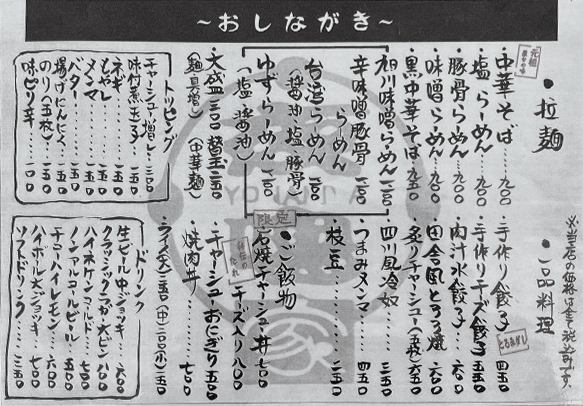 ~おしながき~
・拉麺
・中華そば…九〇〇
・塩らーめん…九〇〇
・豚骨らーめん…九〇〇
・味噌らーめん…九〇〇
・黒中華そば…九五〇
・旭川味噌らーめん
・辛味噌豚骨らーめん
・台湾らーめん
（醤油 塩 豚骨）
・ゆずらーめん
（塩・醤油）
・大盛 替玉
（麺具増）（中華麺）
トッピング
チャーシュー増し…三〇〇
味付煮玉子
ネギ…一五〇
もやし…一五〇
メンマ…一五〇
バター…一五〇
揚げにんにく…一五〇
のり（五枚）…一五〇
味ピリ辛…一〇〇
※当店の価格は全て税込みです。
・一品料理
・手作り餃子…四五〇
・手作りチーズ餃子…五五〇
・肉汁水餃子…六〇〇
・田舎風とろろ焼
・炙りチャーシュー（五枚）
・四川風冷奴…三五〇
・つまみメンマ…四五〇
・枝豆…三五〇
・ご飯物
限定
石焼チャーシュー丼
チーズ入り 八〇〇
・チャーシューおにぎり
・焼肉丼…七〇〇
・ライス（大）二五〇（中）二〇〇（小）一五〇
ドリンク
生ビール中ジョッキ…六〇〇
クラシックラガー大ビン…八〇〇
ハイネケンコールド…七〇〇
ノンアルコールビール
チューハイレモン…六〇〇
ハイボール大ジョッキ…七〇〇
ソフトドリンク…三五〇